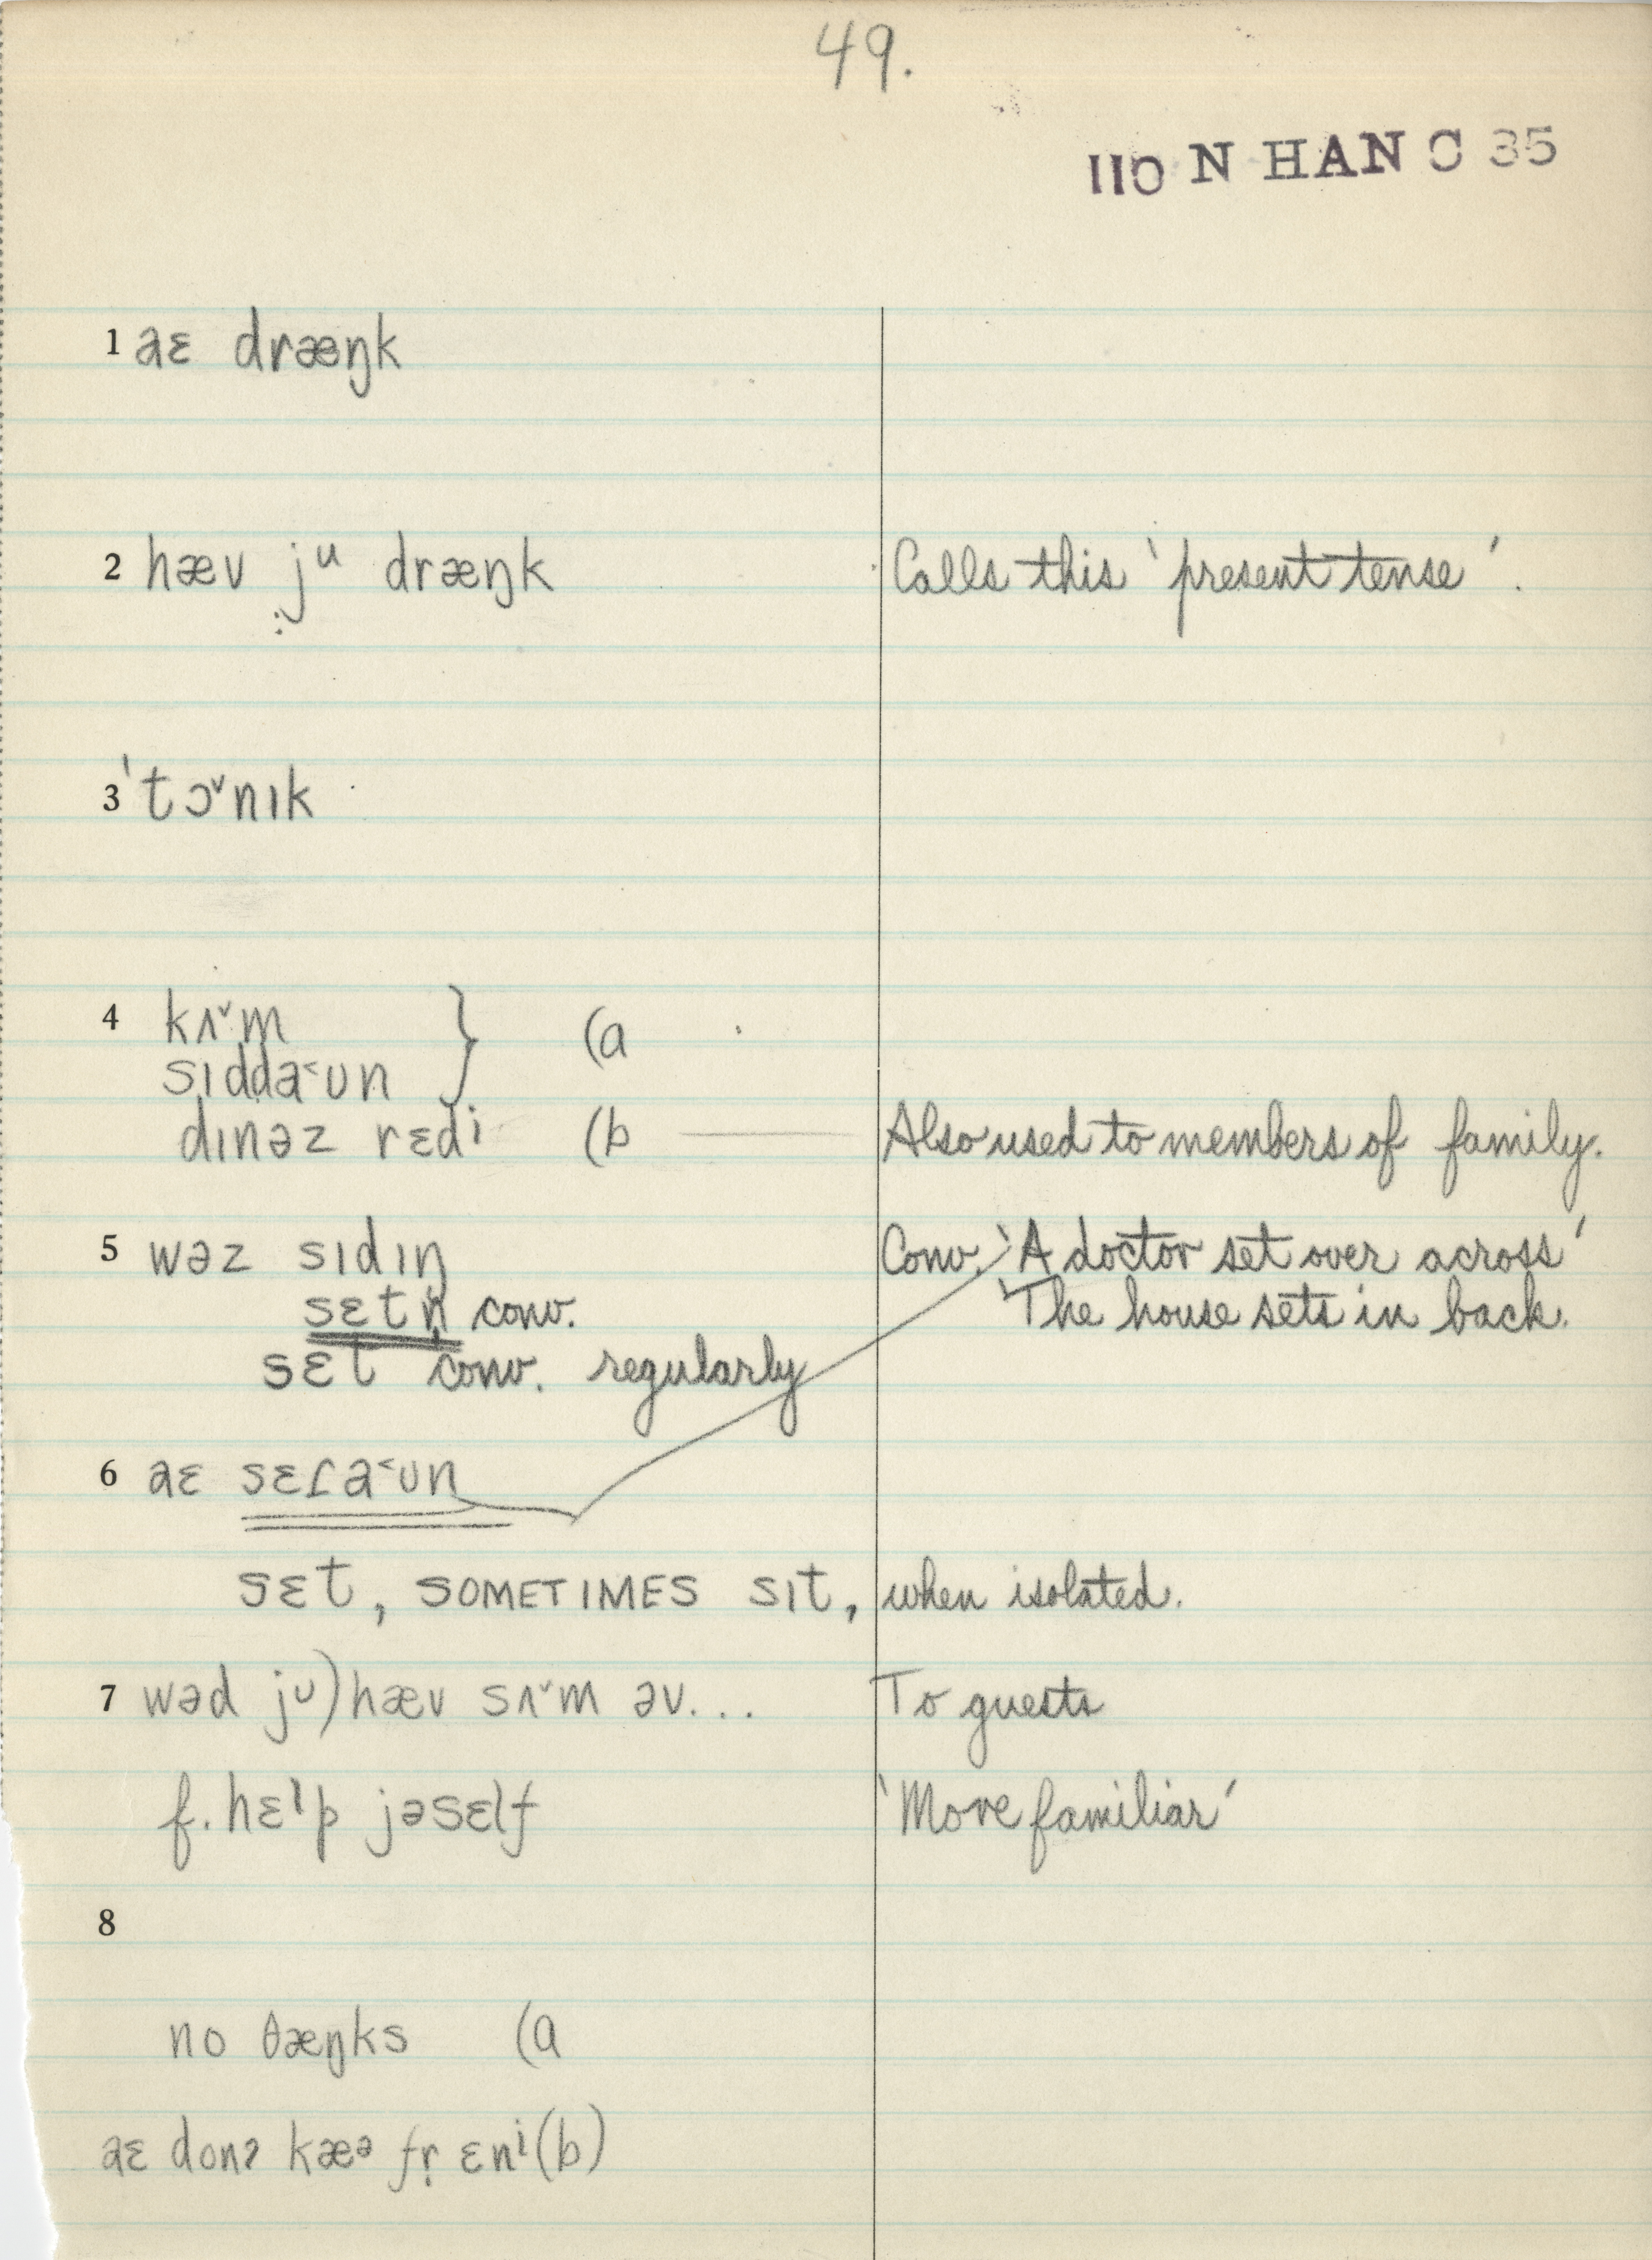 49.
110 N HAN C 35
1 aɛ dræŋk
2 hæv jᵘ dræŋk Calls this 'present tense'.
3 'tɔˇnɪk
4 kʌˇm } (a
sɪdda˂ʊn
dɪnəz rɛdⁱ (b —— Also used to members of family.
5 wəz sɪdɪŋ Conv. 'A doctor set over across'
sɛtn̩ conv. 'The house sets in back.
sɛt conv. regularly
6 aɛ sɛɾa˂ʊn
sɛt, SOMETIMES sɪt, when isolated.
7 wəd jᶸ) hæv sʌˇm əv... To guests
f. hɛˡp jəsɛlf 'More familiar'
8
no θæŋks (a
aɛ donʔ kæᵊ fr̩ ɛnⁱ (b)